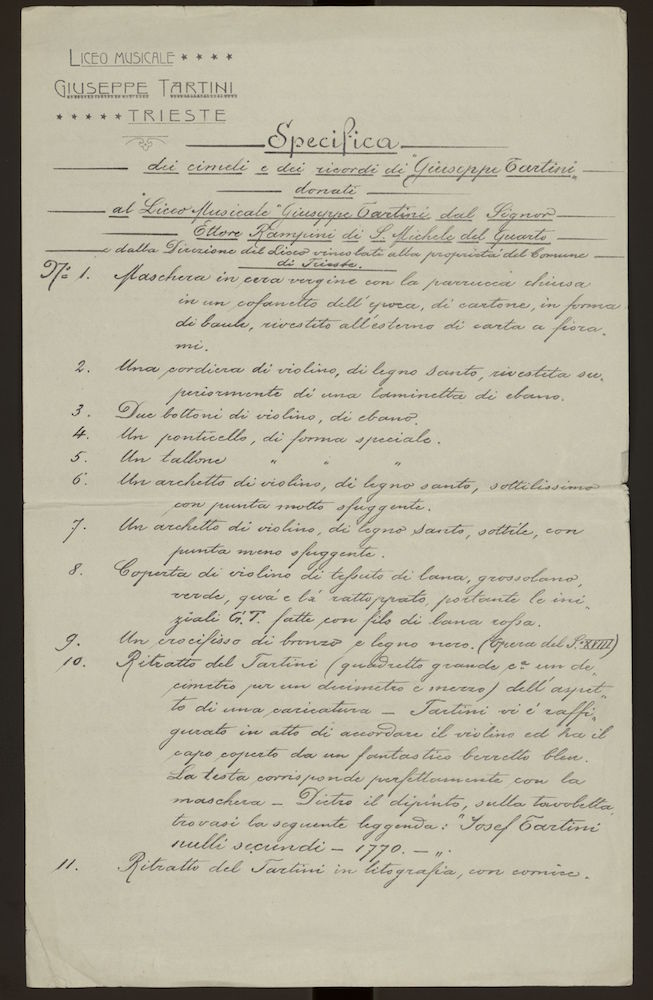 LICEO MUSICALE
GIUSEPPE TARTINI
TRIESTE
Specifica
dei cimeli e dei ricordi di "Giuseppe Tartini"
donati
al "Liceo Musicale" Giuseppe Tartini dal Signor
Ettore Rampini di S. Michele del Quarto
e dalla Direzione del Liceo vincolati alla proprietà del Comune
di Trieste.
No. 1. Maschera in cera vergine con la parrucca chiusa
in un cofanetto dell'epoca, di cartone, in forma
di baule, rivestito all'esterno di carta a fiora-
mi.
2. Una cordiera di violino, di legno santo, rivestita su-
periormente di una laminetta di ebano.
3. Due bottoni di violino, di ebano.
4. Un ponticello, di forma speciale.
5. Un tallone " " "
6. Un archetto di violino, di legno santo, sottilissimo
con punta molto sfuggente.
7. Un archetto di violino, di legno santo, sottile, con
punta meno sfuggente.
8. Coperta di violino di tessuto di lana, grossolano,
verde, quà e là rattoppato, portante le ini-
ziali G.T. fatte con filo di lana rossa.
9. Un crocifisso di bronzo e legno nero. (Opera del S. XVIII)
10. Ritratto del Tartini (quadretto grande ca un de-
cimetro per un decimetro e mezzo) dell'aspet-
to di una caricatura – Tartini vi è raffi-
gurato in atto di accordare il violino ed ha il
capo coperto da un fantastico berretto bleu.
La testa corrisponde perfettamente con la
maschera – Dietro il dipinto, sulla tavoletta,
trovasi la seguente leggenda: "Josef Tartini
nulli secundi – 1770. – „.
11. Ritratto del Tartini in litografia, con cornice.